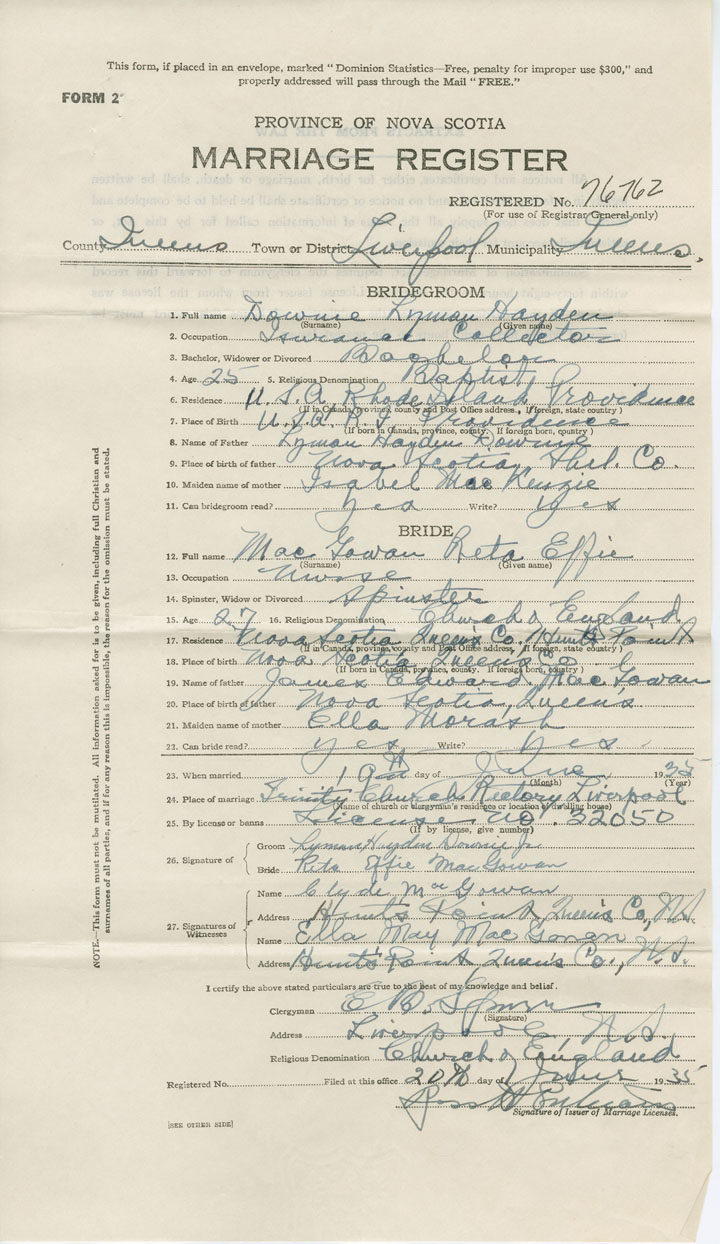 This form, if placed in an envelope, marked "Dominion Statistics—Free, penalty for improper use $300," and
properly addressed will pass through the Mail "FREE."
FORM 2
PROVINCE OF NOVA SCOTIA
MARRIAGE REGISTER
REGISTERED No. 76762
(For use of Registrar General only)
County Queens Town or District Liverpool Municipality Queens.
BRIDEGROOM
1. Full name Downie Lyman Hayden
(Surname) (Given name)
2. Occupation Isurance Collector
3. Bachelor, Widower or Divorced Bachelor
4. Age 25 5. Religious Denomination Baptist
6. Residence U.S.A. Rhode Island, Providence
(If in Canada, province, county and Post Office address., If foreign, state country )
7. Place of Birth U.S.A. R.I. Providence
(If born in Canada, province, county. If foreign born, country )
8. Name of Father Lyman Hayden Downie
9. Place of birth of father Nova Scotia, Shel. Co.
10. Maiden name of mother Isabel MacKenzie
11. Can bridegroom read? yes Write? yes
BRIDE
12. Full name MacGowan Reta Effie
(Surname) (Given name)
13. Occupation Nurse
14. Spinster, Widow or Divorced Spinster
15. Age 27 16. Religious Denomination Church of England.
17. Residence Nova Scotia Queen's Co, Hunts Point
(If in Canada, province, county and Post Office address, If foreign, state country )
18. Place of birth Nova Scotia Queens Co
(If born in Canada, province, county. If foreign born, country )
19. Name of father James Edward MacGowan
20. Place of birth of father Nova Scotia, Queen's
21. Maiden name of mother Ella Morash
22. Can bride read? yes Write? yes
23. When married 19th day of June 1935
(Month) (Year)
24. Place of marriage Trinity Church Rectory Liverpool
(Name of church or clergyman's residence or location of dwelling house)
25. By license or banns License No. 32050
(If by license, give number)
26. Signature of
Groom Lyman Hayden Downie Jr.
Bride Reta Effie MacGowan
27. Signatures of Witnesses
Name Clyde MacGowan
Address Hunt's Point, Queen's Co, N.S.
Name Ella May MacGowan
Address Hunts Point Queen's Co., N.S.
I certify the above stated particulars are true to the best of my knowledge and belief.
Clergyman E. B.
(Signature)
Address Liverpool, N.S.
Religious Denomination Church of England
Registered No. Filed at this office 20th day of June 1935
Signature of Issuer of Marriage Licenses.
[SEE OTHER SIDE]
NOTE.—This form must not be mutilated. All information asked for is to be given, including full Christian and
surnames of all parties, and if for any reason this is impossible, the reason for the omission must be stated.